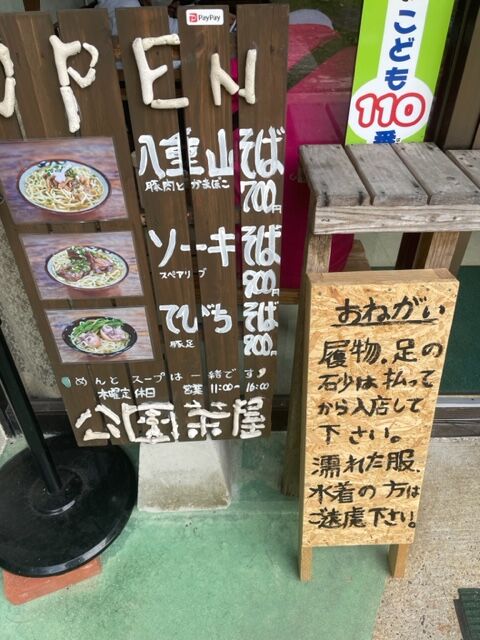 PayPay
OPEN
八重山そば
豚肉とかまぼこ
700円
ソーキそば
スペアリブ
900円
てびちそば
豚足
800円
めんとスープは一緒です
木曜定休日 営業 11:00〜16:00
公園茶屋
こども
110番
おねがい
履物、足の
石砂は払って
から入店して
下さい。
濡れた服、
水着の方は
ご遠慮下さい。